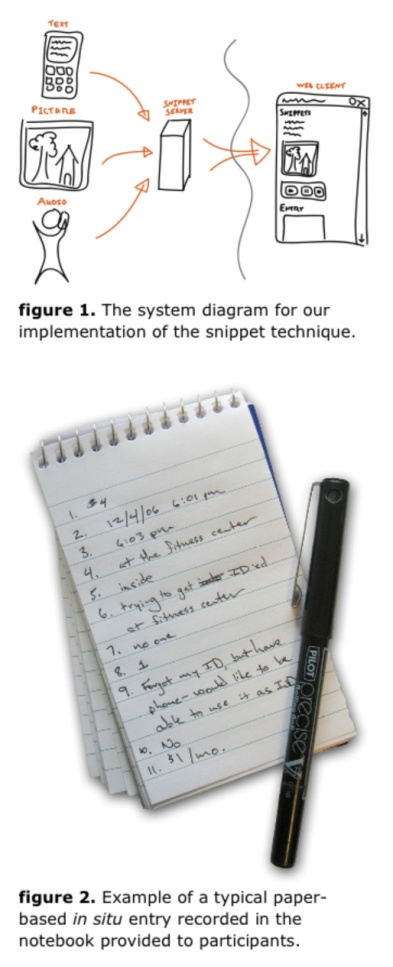 TEXT
PICTURE
AUDIO
SNIPPET
SERVER
WEB CLIENT
SNIPPETS
ENTRY
figure 1. The system diagram for our
implementation of the snippet technique.
1. $4
2. 12/4/06 6:01 pm
3. 6:03 pm
4. at the fitness center
5. inside
6. trying to get ID'ed
at fitness center
7. no one
8. 1
9. Forgot my ID, but have
phone - would like to be
able to use it as ID
10. No
11. $1/mo.
PILOT
precise V7
figure 2. Example of a typical paper-
based in situ entry recorded in the
notebook provided to participants.